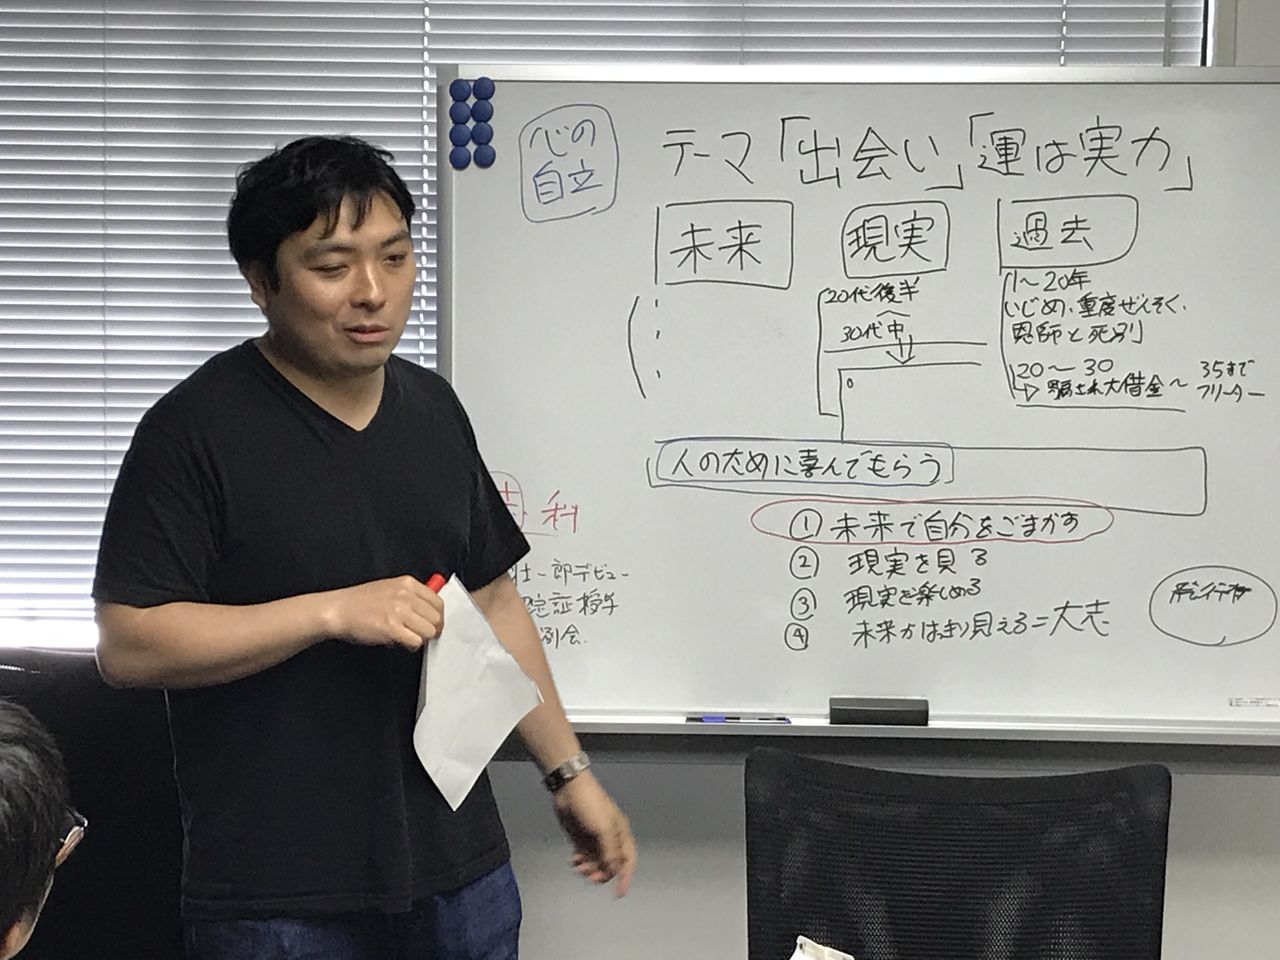 心の
自立
テーマ「出会い」「運は実力」
未来
現実
過去
20代後半
30代中
1〜20年
いじめ、重度ぜんそく、
恩師と死別
20〜30
騙され大借金〜
35まで
フリーター
人のために喜んでもらう
① 未来で自分をごまかす
② 現実を見る
③ 現実を楽しめる
④ 未来がはっきり見える=大志
科
一郎デビュー
証授与
例会